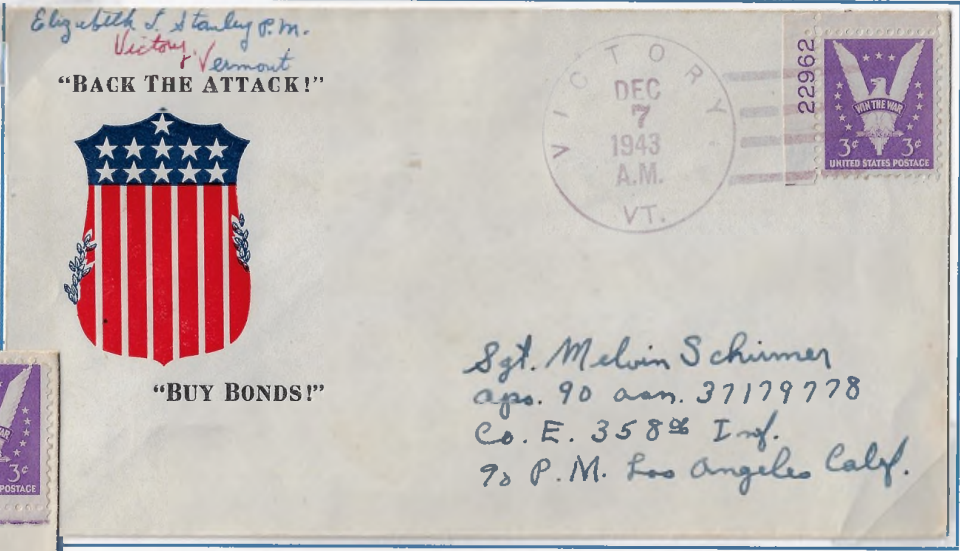 Elizabeth L. Stanley P.M.
Victory,
Vermont
"BACK THE ATTACK!"
"BUY BONDS!"
VICTORY
DEC
7
1943
A.M.
VT.
22962
WIN THE WAR
3¢ 3¢
UNITED STATES POSTAGE
Sgt. Melvin Schirmer
apo. 90 asn. 37179778
Co. E. 358th Inf.
℅ P.M. Los Angeles Calif.
WAR
3¢
POSTAGE